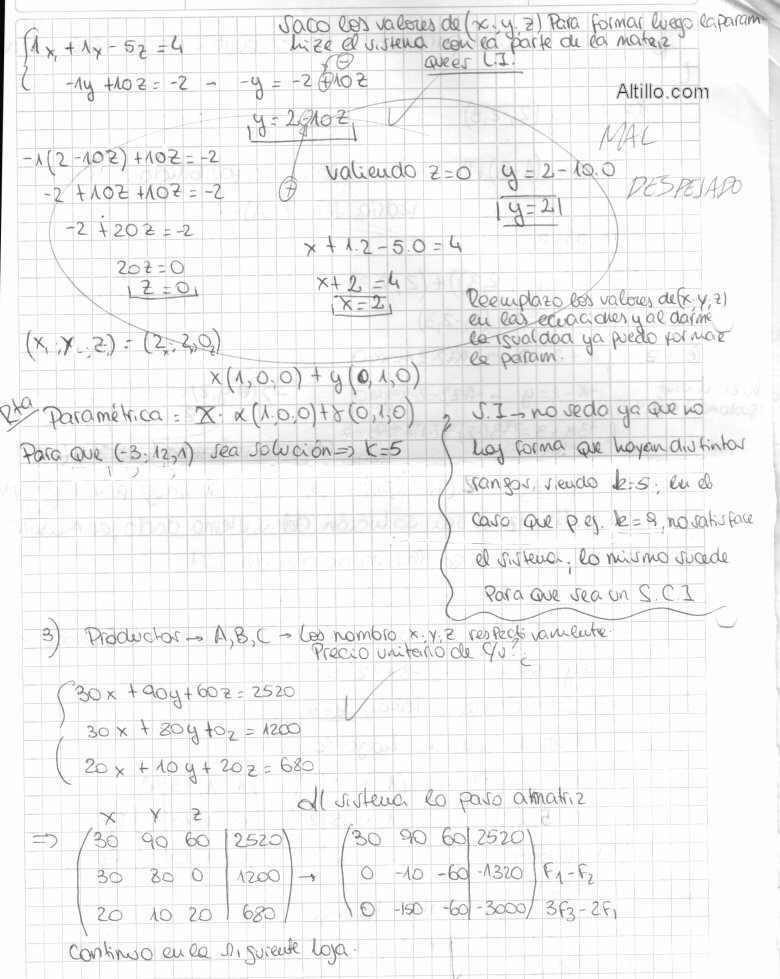 Saco los valores de (x, y, z) Para formar luego la param
hize el sistema con la parte de la matriz
que es L.I.
1x + 1y - 5z = 4
-1y + 10z = -2 - -y = -2 + 10z
-
Altillo.com
y = 2-10z
MAL
DESPEJADO
-1(2 - 10z) + 10z = -2
-2 + 10z + 10z = -2
-2 + 20z = -2
20z = 0
z = 0
+
valiendo z = 0 y = 2 - 10.0
y = 2
x + 1.2 - 5.0 = 4
x + 2 = 4
x = 2
Reemplazo los valores de (x, y, z)
en las ecuaciones y al darme
la igualdad ya puedo formar
la param.
(x, y, z) = (2, 2, 0)
x(1,0,0) + y(0,1,0)
Rta Paramétrica = X = α(1,0,0) + γ(0,1,0)
Para que (-3, 12, 1) sea solución => k=5
S.I → no se da ya que no
hay forma que hayan distintos
rangos, siendo k=5; en el
caso que p ej. k=9, no satisface
el sistema, lo mismo sucede
Para que sea un S.C.I
3) Productos → A, B, C → Los nombro x, y, z respectivamente.
Precio unitario de c/u?
30x + 90y + 60z = 2520
30x + 80y + 0z = 1200
20x + 10y + 20z = 680
Al sistema lo paso a matriz
X Y Z
=> 30 90 60 | 2520 → 30 90 60 | 2520
30 80 0 | 1200 0 -10 -60 | -1320 F1 - F2
20 10 20 | 680 0 -150 -60 | -3000 3F3 - 2F1
Continuo en la siguiente hoja.